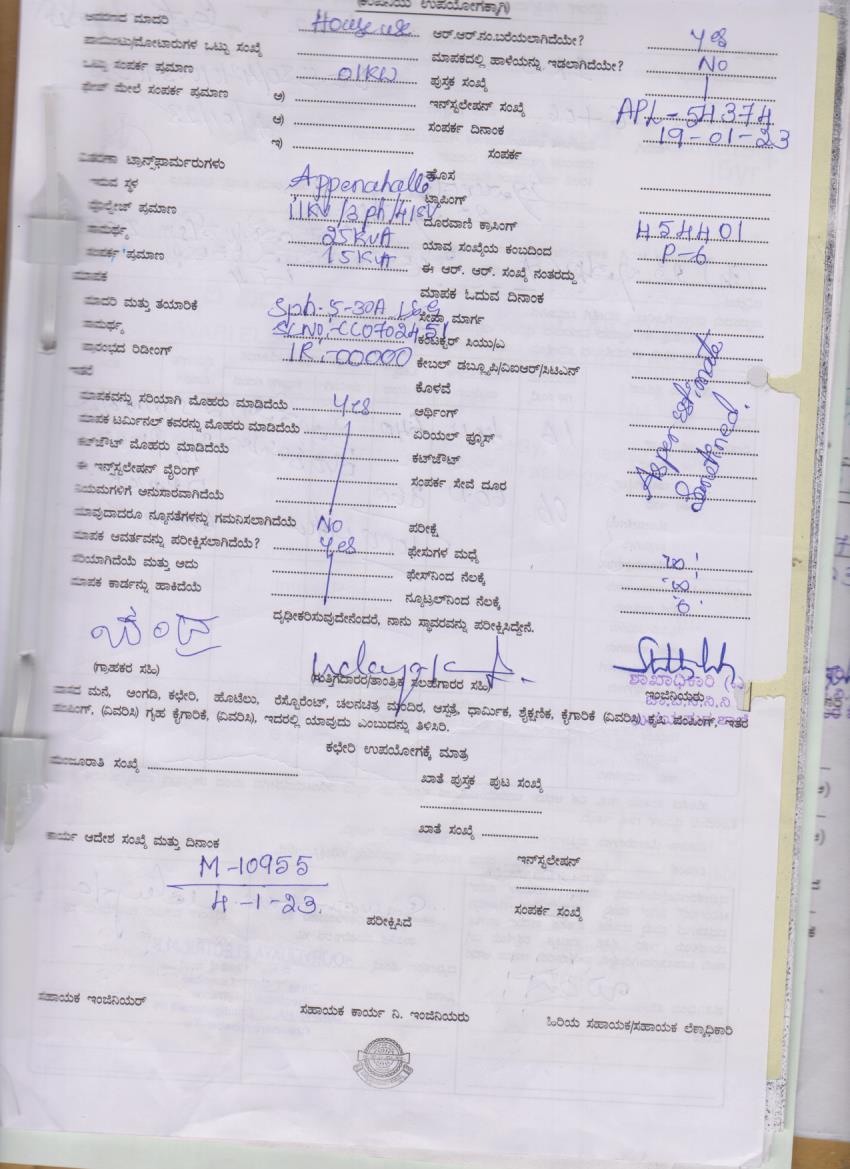 (ಕಂಪನಿಯ ಉಪಯೋಗಕ್ಕಾಗಿ)
ಮಾದರಿ House use ಆರ್.ಆರ್.ನಂ.ಬರೆಯಲಾಗಿದೆಯೇ? Yes
ಪಾಯಿಂಟ್ಸು/ಮೋಟಾರುಗಳ ಒಟ್ಟು ಸಂಖ್ಯೆ ಮಾಪಕದಲ್ಲಿ ಹಾಳೆಯನ್ನು ಇಡಲಾಗಿದೆಯೇ? No
ಒಟ್ಟು ಸಂಪರ್ಕ ಪ್ರಮಾಣ 01KW ಪುಸ್ತಕ ಸಂಖ್ಯೆ
ಫೇಜ್ ಮೇಲೆ ಸಂಪರ್ಕ ಪ್ರಮಾಣ ಅ) ಇನ್‌ಸ್ಟಲೇಷನ್ ಸಂಖ್ಯೆ APL-54374
ಆ) ಸಂಪರ್ಕ ದಿನಾಂಕ 19-01-23
ಇ) ಸಂಪರ್ಕ
ವಿತರಣಾ ಟ್ರಾನ್ಸ್‌ಫಾರ್ಮರುಗಳು ಹೊಸ
ಇರುವ ಸ್ಥಳ Appenahalle ಟ್ಯಾಪಿಂಗ್
ವೋಲ್ಟೇಜ್ ಪ್ರಮಾಣ 11KV/3ph/415V ದೂರವಾಣಿ ಕ್ರಾಸಿಂಗ್ 454401
ಸಾಮರ್ಥ್ಯ 25KVA ಯಾವ ಸಂಖ್ಯೆಯ ಕಂಬದಿಂದ P-6
ಸಂಪರ್ಕ ಪ್ರಮಾಣ 15KVA ಈ ಆರ್. ಆರ್. ಸಂಖ್ಯೆ ನಂತರದ್ದು
ಮಾಪಕ ಮಾಪಕ ಓದುವ ದಿನಾಂಕ
ಮಾದರಿ ಮತ್ತು ತಯಾರಿಕೆ Sph: 5-30A L&G ಸೇವಾ ಮಾರ್ಗ
ಸಾಮರ್ಥ್ಯ Sl.No:-CC0702451 ಕಂಡಕ್ಟರ್ ಸಿಯು/ಎ
ಪ್ರಾರಂಭದ ರಿಡೀಂಗ್ IR:-00000 ಕೇಬಲ್ ಡಬ್ಲ್ಯೂಪಿ/ವಿಐಆರ್/ಸಿಟಿಎನ್
ಇತರೆ ಕೊಳವೆ
ಮಾಪಕವನ್ನು ಸರಿಯಾಗಿ ಮೊಹರು ಮಾಡಿದೆಯೆ Yes ಆರ್ಥಿಂಗ್
ಮಾಪಕ ಟರ್ಮಿನಲ್ ಕವರನ್ನು ಮೊಹರು ಮಾಡಿದೆಯೆ ಏರಿಯಲ್ ಫ್ಯೂಸ್
ಕಟ್‌ಔಟ್ ಮೊಹರು ಮಾಡಿದೆಯೆ ಕಟ್‌ಔಟ್
ಈ ಇನ್‌ಸ್ಟಲೇಷನ್ ವೈರಿಂಗ್ ಸಂಪರ್ಕ ಸೇವೆ ದೂರ
As per Estimate Sanctioned.
ನಿಯಮಗಳಿಗೆ ಅನುಸಾರವಾಗಿದೆಯೆ
ಯಾವುದಾದರೂ ನ್ಯೂನತೆಗಳನ್ನು ಗಮನಿಸಲಾಗಿದೆಯೆ No ಪರೀಕ್ಷೆ
ಮಾಪಕ ಆವರ್ತವನ್ನು ಪರೀಕ್ಷಿಸಲಾಗಿದೆಯೆ? Yes ಫೇಸುಗಳ ಮಧ್ಯೆ
ಸರಿಯಾಗಿದೆಯೆ ಮತ್ತು ಆದು ಫೇಸ್‌ನಿಂದ ನೆಲಕ್ಕೆ
ಮಾಪಕ ಕಾರ್ಡನ್ನು ಹಾಕಿದೆಯೆ ನ್ಯೂಟ್ರಲ್‌ನಿಂದ ನೆಲಕ್ಕೆ
ದೃಢೀಕರಿಸುವುದೇನೆಂದರೆ, ನಾನು ಸ್ಥಾವರವನ್ನು ಪರೀಕ್ಷಿಸಿದ್ದೇನೆ.
(ಗ್ರಾಹಕರ ಸಹಿ) (ಗುತ್ತಿಗೆದಾರರ/ತಾಂತ್ರಿಕ ಸಲಹಗಾರರ ಸಹಿ) ಇಂಜಿನಿಯರು
ಶಾಖಾಧಿಕಾರಿ
ವಾಸದ ಮನೆ, ಅಂಗಡಿ, ಕಛೇರಿ, ಹೊಟೆಲು, ರೆಸ್ಟೊರೆಂಟ್, ಚಲನಚಿತ್ರ ಮಂದಿರ, ಆಸ್ಪತ್ರೆ, ಧಾರ್ಮಿಕ, ಶೈಕ್ಷಣಿಕ, ಕೈಗಾರಿಕೆ (ವಿವರಿಸಿ) ಕೃಷಿ ಪಂಪಿಂಗ್, ಇತರೆ
ಪಂಪಿಂಗ್, (ವಿವರಿಸಿ) ಗೃಹ ಕೈಗಾರಿಕೆ, (ವಿವರಿಸಿ), ಇದರಲ್ಲಿ ಯಾವುದು ಎಂಬುದನ್ನು ತಿಳಿಸಿರಿ.
ಕಛೇರಿ ಉಪಯೋಗಕ್ಕೆ ಮಾತ್ರ
ಮಂಜೂರಾತಿ ಸಂಖ್ಯೆ ಖಾತೆ ಪುಸ್ತಕ ಪುಟ ಸಂಖ್ಯೆ
ಖಾತೆ ಸಂಖ್ಯೆ
ಕಾರ್ಯ ಆದೇಶ ಸಂಖ್ಯೆ ಮತ್ತು ದಿನಾಂಕ
M-10955 ಇನ್‌ಸ್ಟಲೇಷನ್
4-1-23.
ಪರೀಕ್ಷಿಸಿದೆ ಸಂಪರ್ಕ ಸಂಖ್ಯೆ
ಸಹಾಯಕ ಇಂಜಿನಿಯರ್ ಸಹಾಯಕ ಕಾರ್ಯ ನಿ. ಇಂಜಿನಿಯರು ಹಿರಿಯ ಸಹಾಯಕ/ಸಹಾಯಕ ಲೆಕ್ಕಾಧಿಕಾರಿ